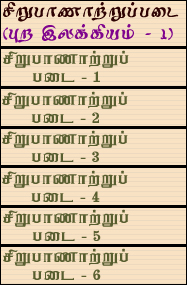 சிறுபாணாற்றுப்படை
(புற இலக்கியம் - 1)
சிறுபாணாற்றுப்
படை - 1
சிறுபாணாற்றுப்
படை - 2
சிறுபாணாற்றுப்
படை - 3
சிறுபாணாற்றுப்
படை - 4
சிறுபாணாற்றுப்
படை - 5
சிறுபாணாற்றுப்
படை - 6